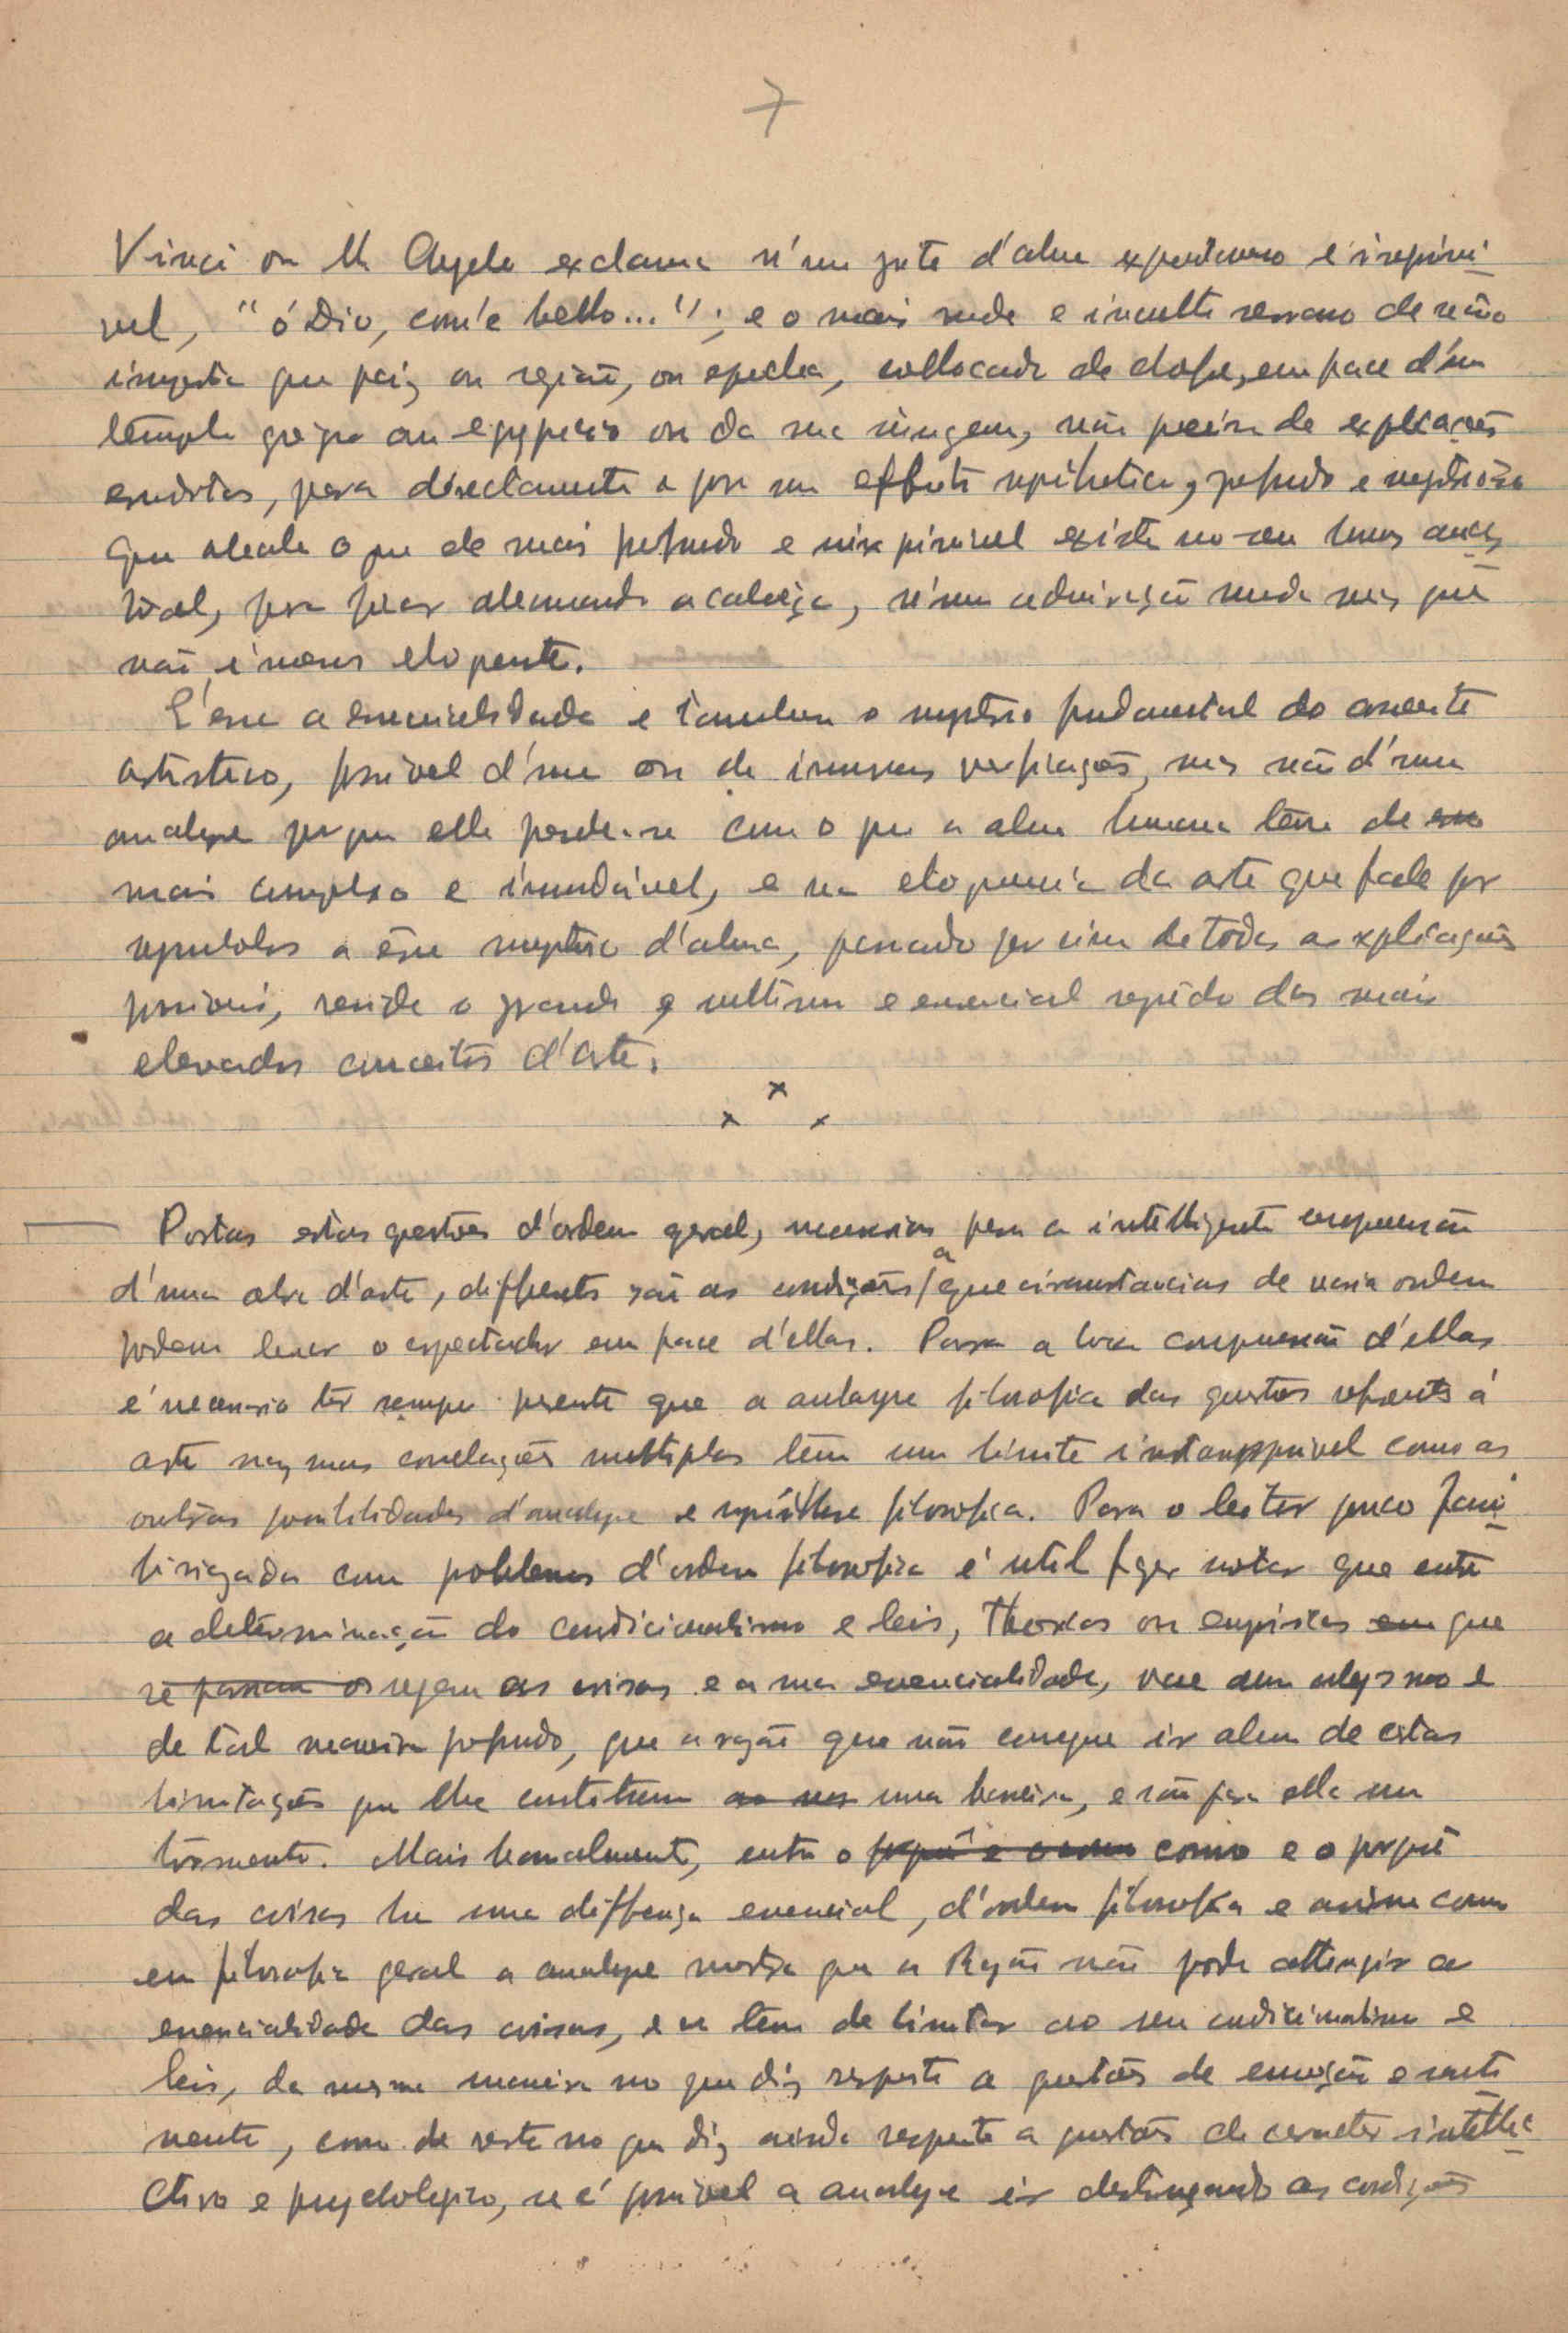 7
Vinci ou M. Angelo exclama n'um grito d'alma expontaneo e irreprimi-
vel, "ó Dio, com'è bello..."; e o mais rude e inculto serrano de não
importa que paiz ou região, ou epocha, collocado de chofre, em face d'um
templo grego ou egypcio ou da sua imagem, não precisa de explicações
eruditas, para directamente e por um effeito synthetico, profundo e mysterioso
que abala o que de mais profundo e inexprimivel existe no seu humus ances-
tral, para ficar abanando a cabeça, n'uma admiração muda mas que
não é menos eloquente.
É essa a essencialidade e tambem o mysterio fundamental do conceito
artistico, possivel d'uma ou de inumeras verificações, mas não d'uma
analyse porque elle perde-se com o que a alma humana tem de
mais complexo e insondável, e na eloquencia da arte que falla por
symbolos a êsse mysterio d'alma, passando por cima de todas as explicações
possiveis, reside o grande e ultimo e essencial segrêdo dos mais
elevados conceitos d'arte.
x x x
Postas estas questões d'ordem geral, necessarias para a intelligente comprehensão
d'uma obra d'arte, differentes são as condições a que circumstancias de varia ordem
podem levar o espectador em face d'ellas. Para a boa comprehensão d'ellas
é necessario ter sempre presente que a analyse filosofica das questões referentes á
arte nas suas correlações multiplas tem um limite intransponivel como as
outras possibilidades d'analyse e synthese filosofica. Para o leitor pouco fami-
liarizado com problemas d'ordem filosofica é util fazer notar que entre
a determinação do condicionalismo e leis, theoricas ou empiricas em que
se passam os regem as coisas e a sua essencialidade, vae um abysmo e
de tal maneira profundo, que a razão que não consegue ir alem de estas
limitações que lhe constituem uma barreira, e são para ella um
tormento. Mais banalmente, entre o porquê e o como como e o porquê
das coisas ha uma differença essencial, d'ordem filosofica e assim como
em filosofia geral a analyse mostra que a Razão não pode attingir a
essencialidade das coisas, e se tem de limitar ao seu condicionalismo e
leis, da mesma maneira no que diz respeito a questões de emoção e senti-
mento, como de resto no que diz ainda respeito a questões de caracter intelle-
ctivo e psychologico, se é possivel a analyse ir destrinçando as condições